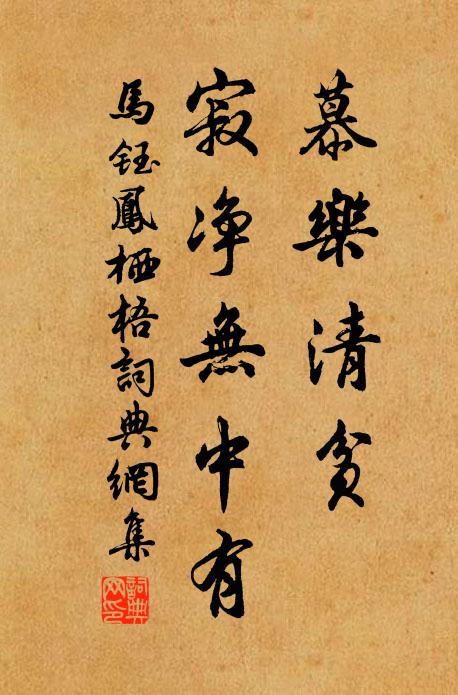 慕樂清貧
寂净無中有
馬鈺鳳栖梧詞典網集
詞典网印